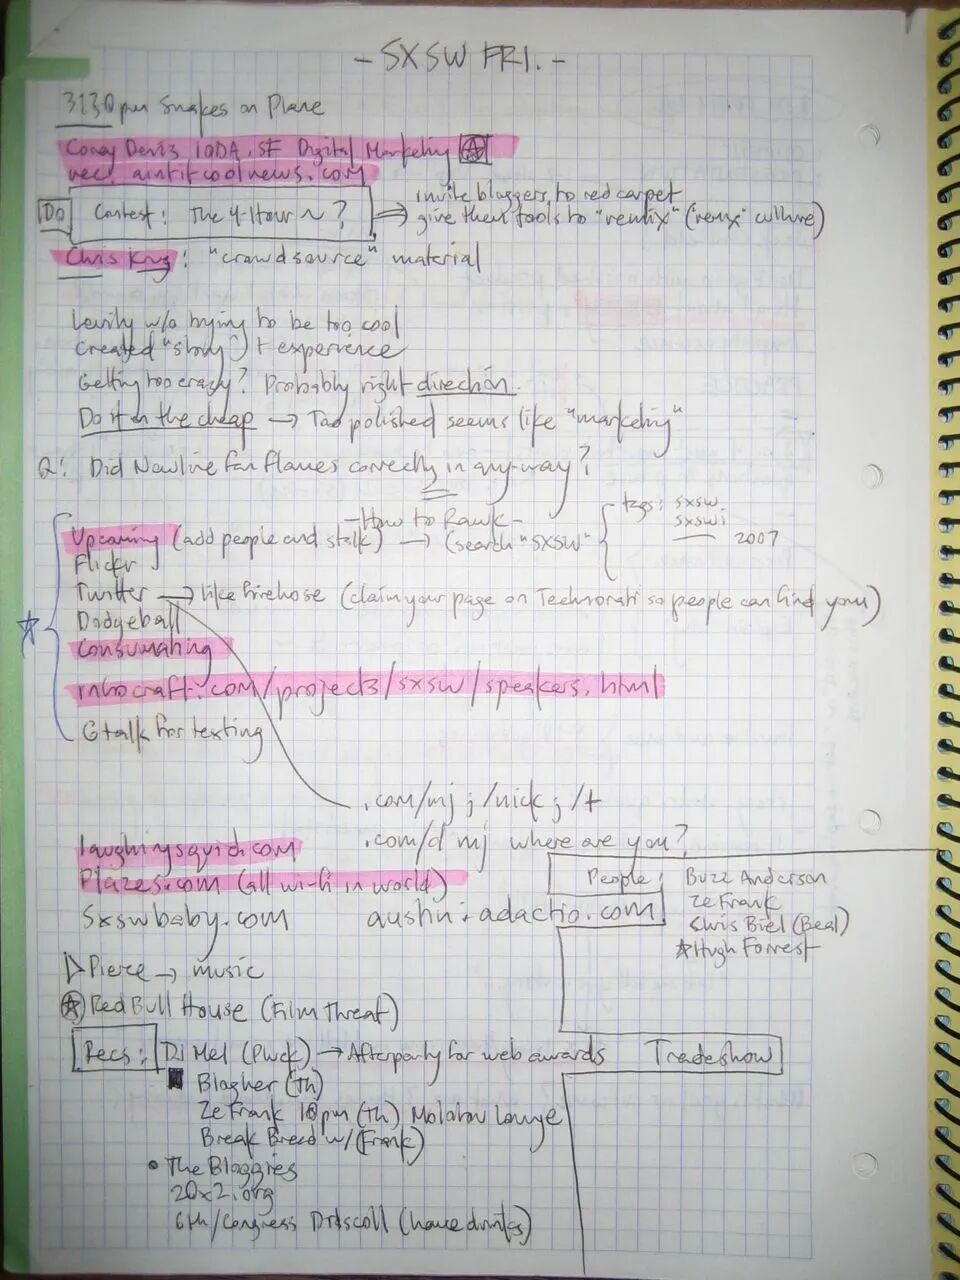 - SXSW FRI. -
3130pm Snakes on Plane
Corey Denis IODA, SF Digital Marketing
rec. aintitcoolnews.com
Do Contest: The 4-Hour ~? ⇒ invite bloggers to red carpet
give them tools to "remix" ("remix" culture)
Chris King: "crowdsource" material
Levity w/o trying to be too cool
Created "story" + experience
Getting too crazy? Probably right direction.
Do it on the cheap → Too polished seems like "marketing"
Q: Did Newline fan flames correctly in any way?
- How to Rawk -
Upcoming (add people and stalk) → (search "SXSW" { tags: sxsw.
sxswi
2007
Flickr
Twitter → like firehose (claim your page on Technorati so people can find you)
Dodgeball
Consumating
introcraft.com/projects/sxsw/speakers.html
Gtalk for texting
.com/mj ; /nick ; /t
.com/d mj where are you?
laughingsquid.com
Plazes.com (all wi-fi in world)
Sxswbaby.com
austin.adactio.com
People:
Buzz Anderson
Ze Frank
Chris Biel (Beal)
Hugh Forrest
Pierce → music
Red Bull House (Film Threat)
Recs: DJ Mel (Pwck) → Afterparty for web awards
Tradeshow
Blogher (th)
Ze Frank 10pm (th) Molotov Lounge
Break Bread w/ (Frank)
• The Bloggies
20x2.org
6th/Congress Driscoll (have drinks)